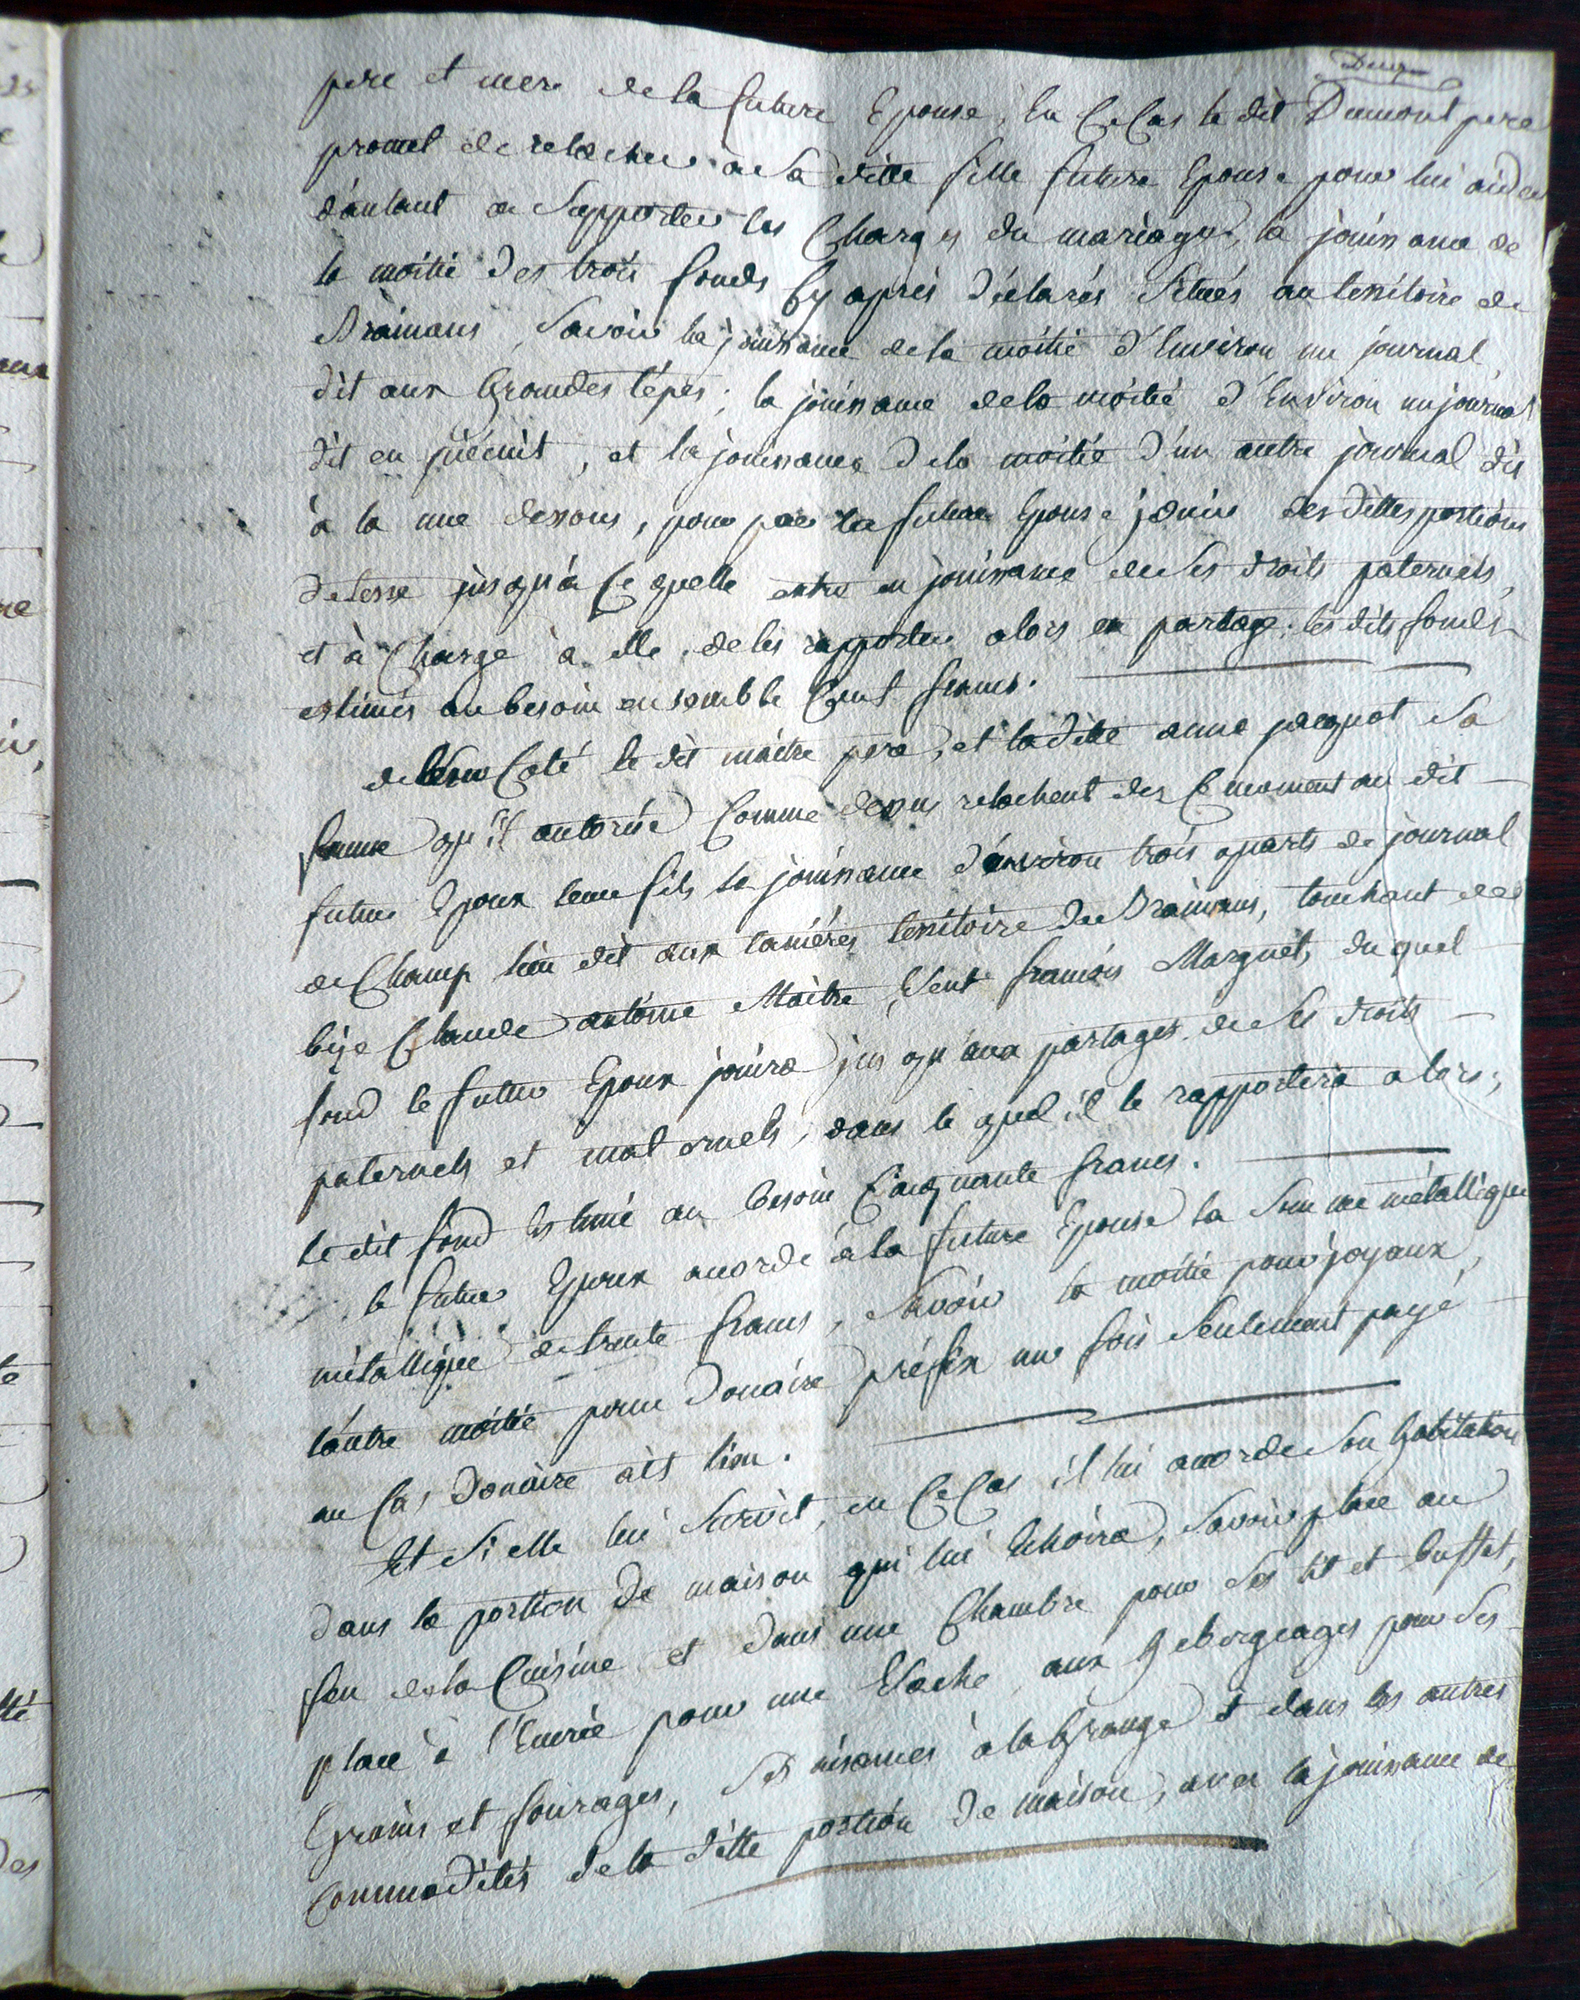 Deux
pere et mere de la future Epouse, En Ce Cas le dit Dumont pere
promet de relacher a Sa ditte fille future Epouse pour lui aider
d'autant a Supporter les Charges du mariage, la jouissance de
la moitié des trois fonds Cy après déclarés Situés au territoire de
Drainans, Savoir la jouissance de la moitié d'Environ un journal,
dit aux Grandes tépes; la jouissance de la moitié d'Environ un journal
dit en , et la jouissance de la moitié d'un autre journal dit
à la dessous, pour par la future Epouse jouir des dittes portions
de terre jusqu'à Ce quelle entre en jouissance de Ses droits paternels,
et à Charge à elle de les rapporter alors en partage; les dits fonds
estimés au besoin ensemble Cent francs.
de leur Coté le dit maitre pere, et la ditte anne jacquot Sa
femme qu'il autorise Comme dessus relachent des Ce moment au dit
futur Epoux leur fils la jouissance d'environ trois quarts de journal
de Champ lieu dit aux taniéres territoire de Drainans, touchant de
bize Claude antoine Maitre, Vent françois Marguet, du quel
fond le futur Epoux jouira jusqu'aux partages de Ses droits
paternels et maternels, dans le quel il le rapportera alors;
le dit fond Estimé au besoin Cinquante francs.
le futur Epoux acorde à la future Epouse la Somme métallique
métallique de trente francs, Savoir la moitié pour joyaux,
l'autre moitié pour Douaire préfix une fois Seulement payé
au Cas Douaire ait lieu.
Et Si elle lui Survit, en Ce Cas il lui acorde Son habitation
dans la portion de maison qui lui Echoira, Savoir place au
feu de la Cuisine et dans une Chambre pour Ses lit et buffet,
place à l'Ecurie pour une Vache, aux gebergeages pour Ses
Grains et fourages, Ses aisances à la Grange et dans les autres
Commodités de la ditte portion de maison, avec la jouissance de